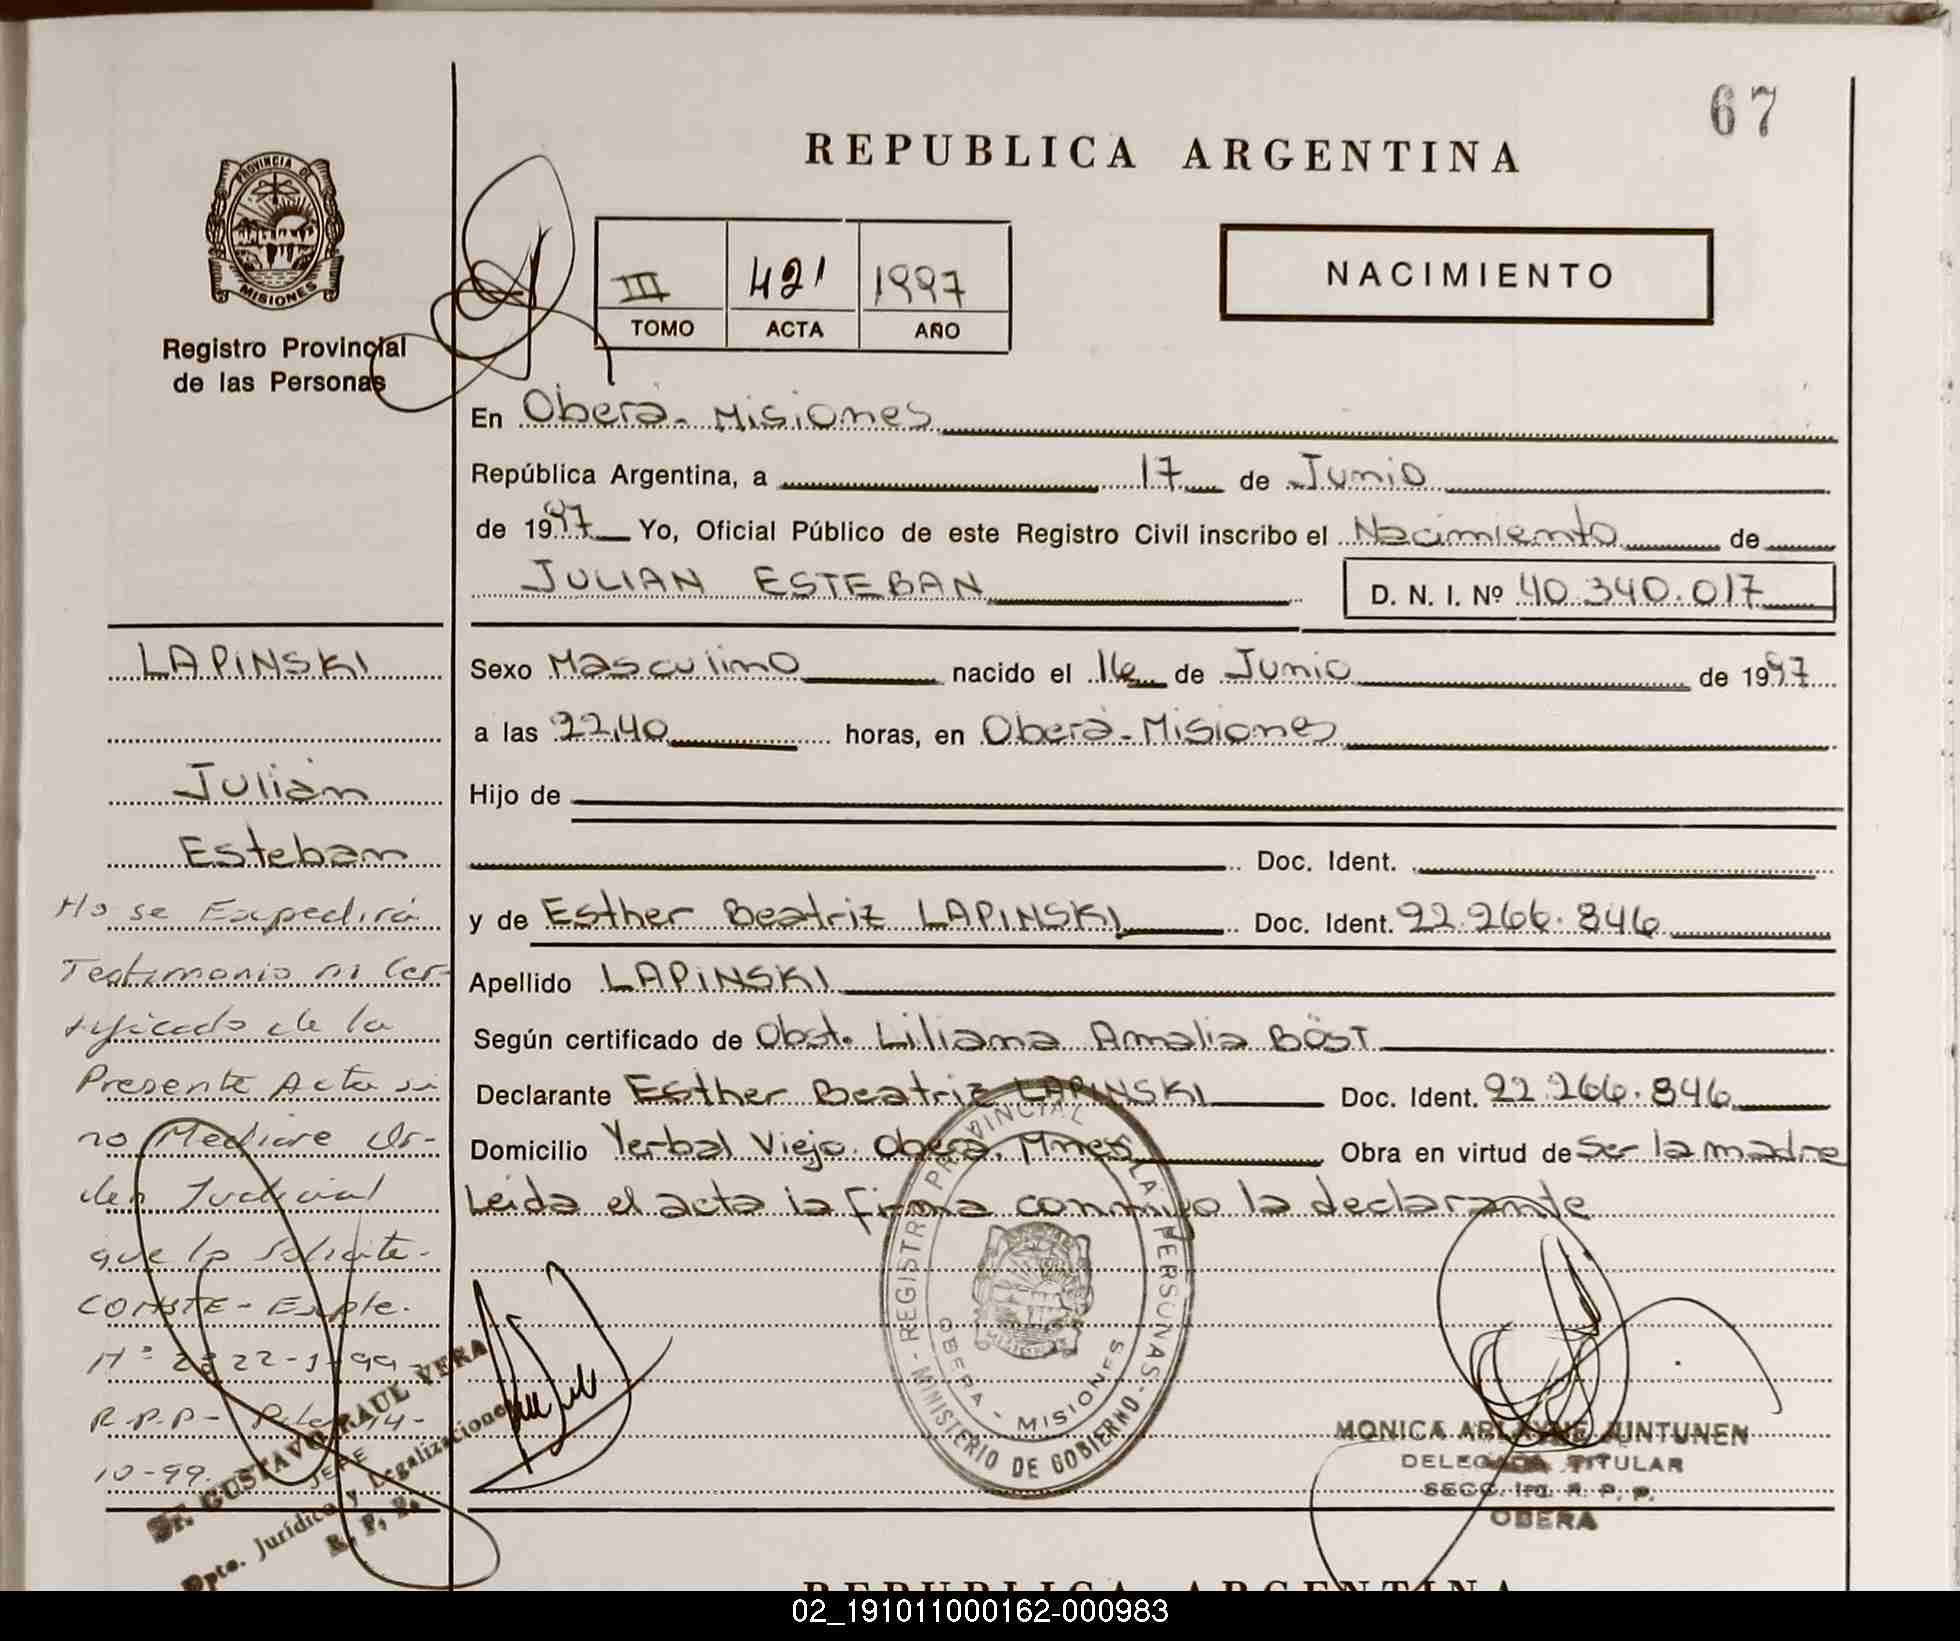 67
REPUBLICA ARGENTINA
PROVINCIA DE
MISIONES
Registro Provincial
de las Personas
III 421 1997
TOMO ACTA AÑO
NACIMIENTO
En Oberá - Misiones
República Argentina, a 17 de Junio
de 1997 Yo, Oficial Público de este Registro Civil inscribo el Nacimiento de
JULIAN ESTEBAN D. N. I. Nº 40.340.017
Sexo Masculino nacido el 16 de Junio de 1997
a las 22,40 horas, en Oberá - Misiones
Hijo de
Doc. Ident.
y de Esther Beatriz LAPINSKI Doc. Ident. 22.266.846
Apellido LAPINSKI
Según certificado de Obst. Liliana Amalia BÖST
Declarante Esther Beatriz LAPINSKI Doc. Ident. 22.266.846
Domicilio Yerbal Viejo. Oberá. Mnes Obra en virtud de Ser la madre
Leida el acta la firma conmigo la declarante
LAPINSKI
Julián
Esteban
No se Expedirá
Testimonio ni Cer-
tificado de la
Presente Acta si
no Mediare Or-
den Judicial
que lo Solicite-
CONSTE - Expte.
Nº 2322-1-99-
R.P.P- 14-
10-99.
Dr. GUSTAVO RAUL VERA
JEFE
Dpto. Jurídico y Legalizaciones
R. P. P.
REGISTRO PROVINCIAL DE LAS PERSONAS
MINISTERIO DE GOBIERNO
OBERA - MISIONES
MONICA ARLAYNE JUNTUNEN
DELEGADA TITULAR
SECC. 1ra. R. P. P.
OBERA
REPUBLICA ARGENTINA
02_191011000162-000983